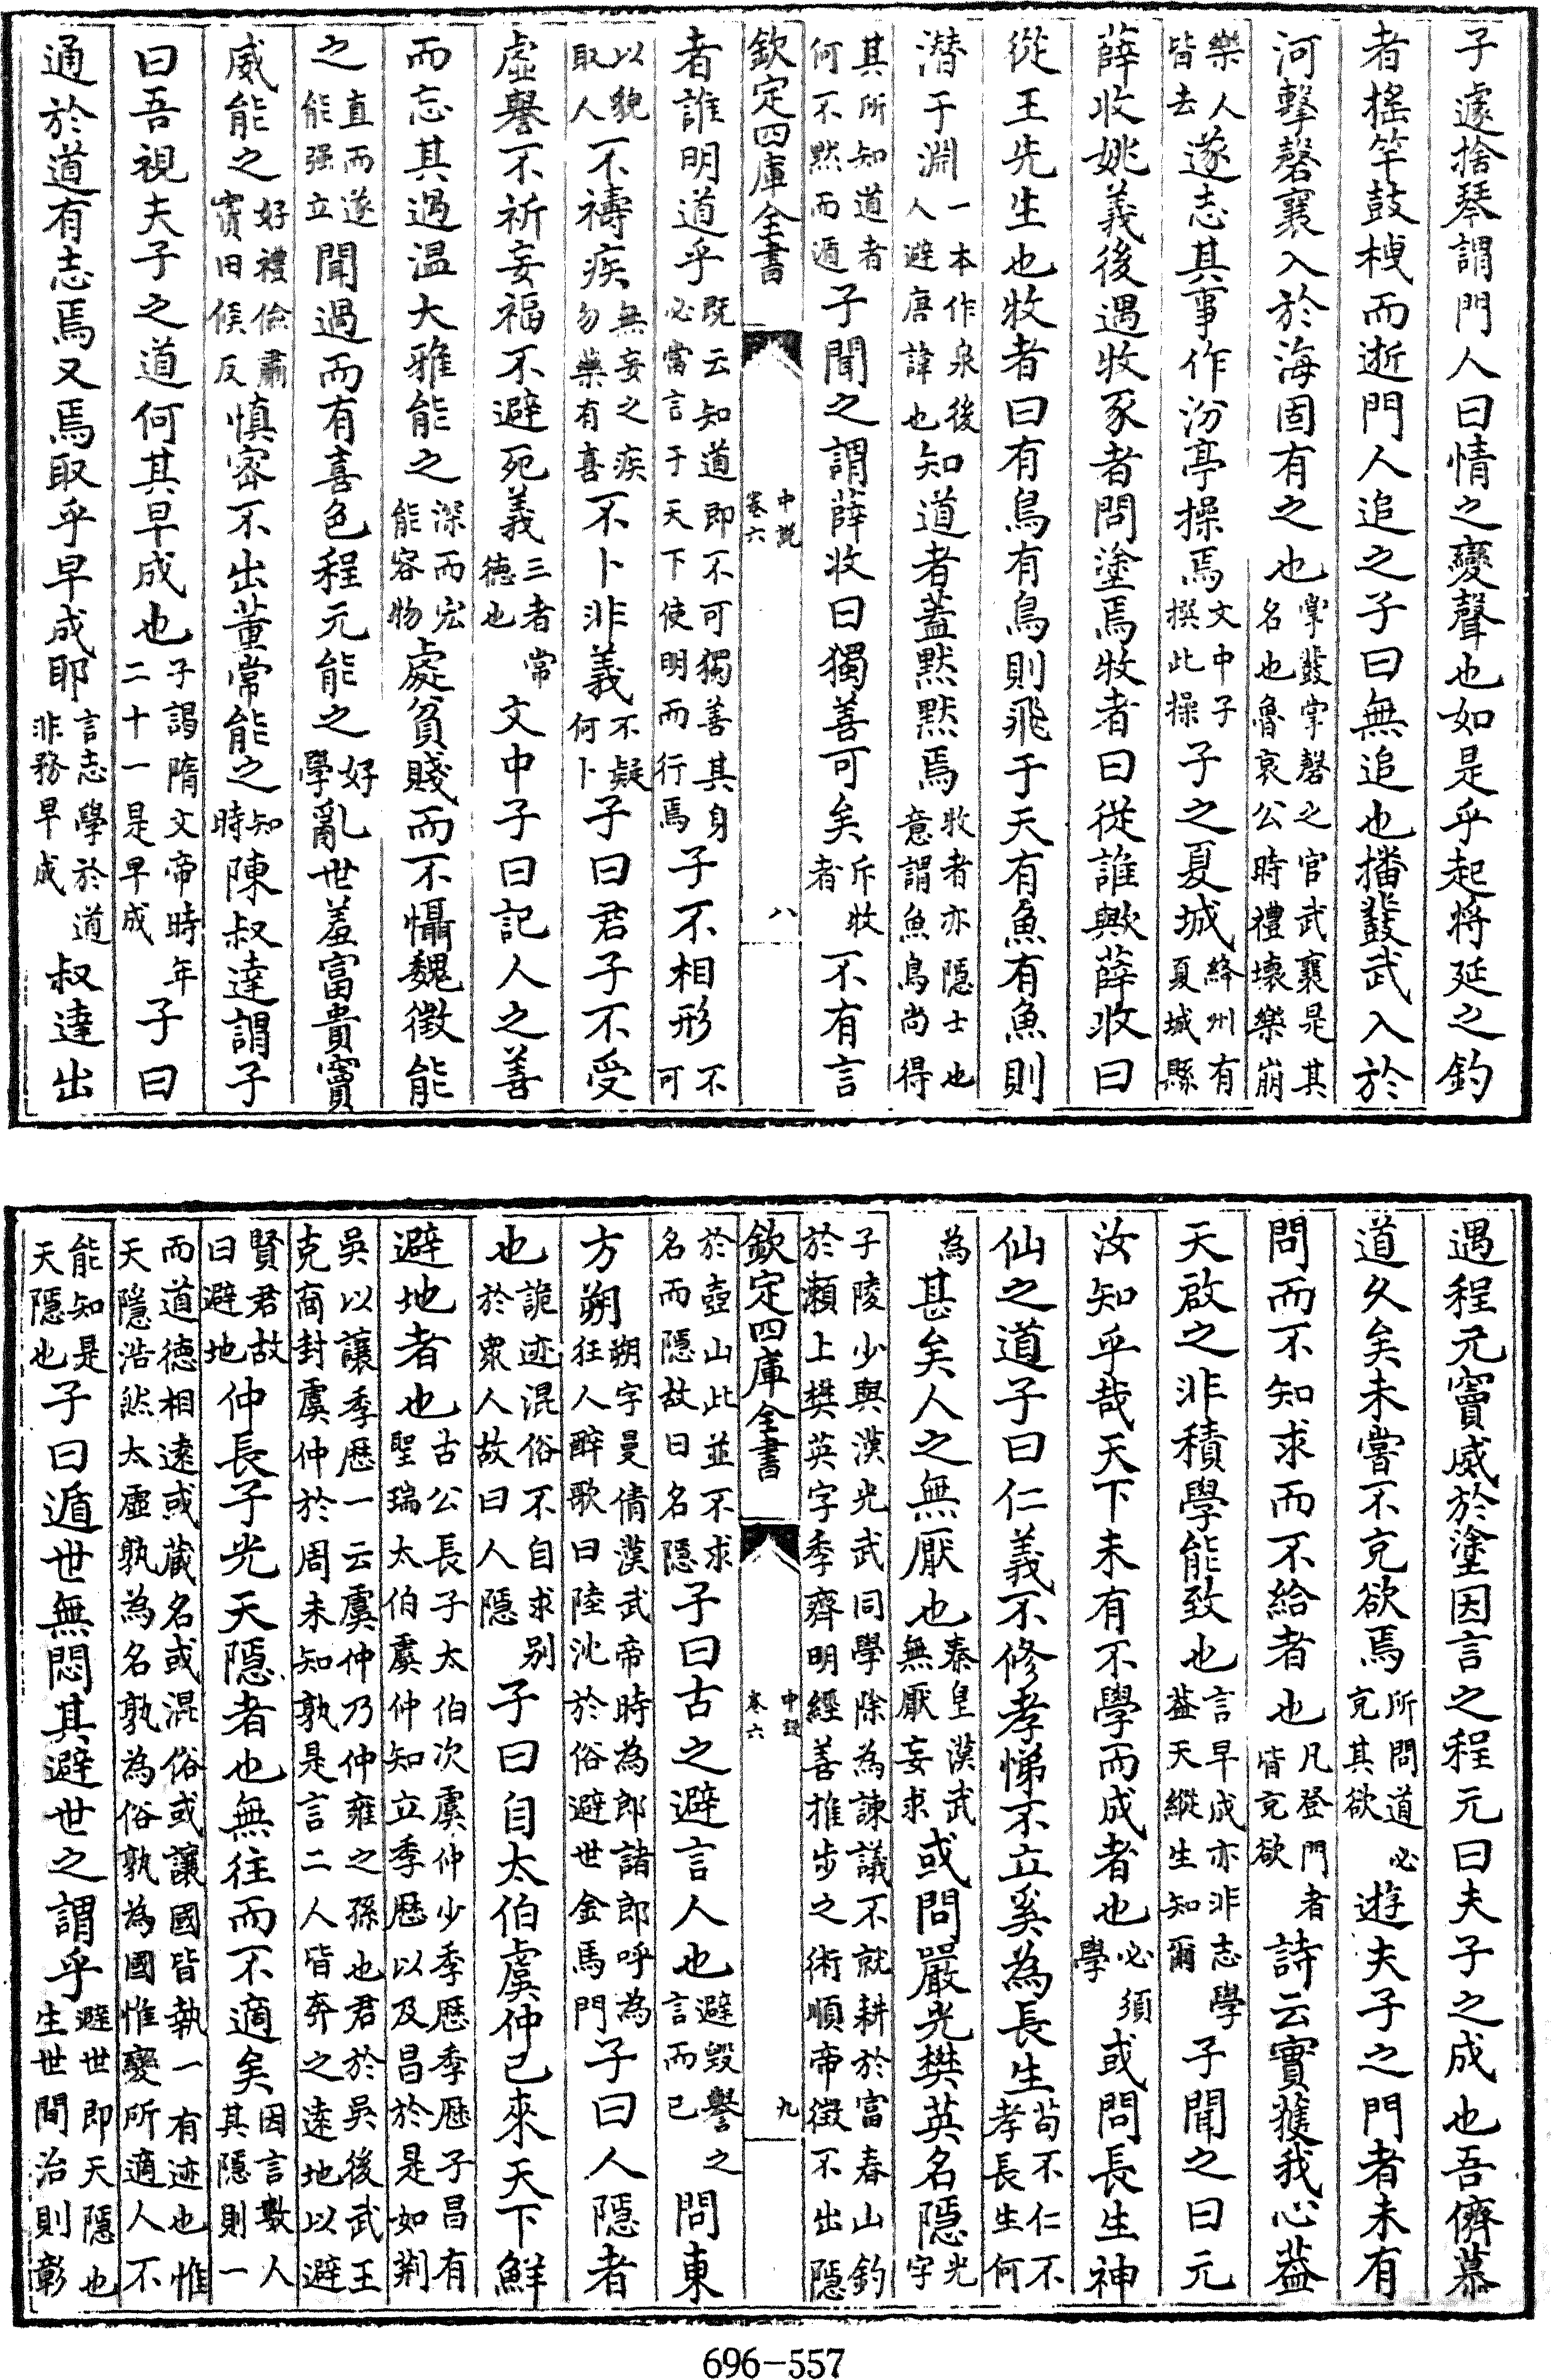 子遽捨琴謂門人曰情之變聲也如是乎起將延之釣
者搖竿鼓栧而逝門人追之子曰無追也播鼗武入於
河擊磬襄入於海固有之也掌鼗掌磬之官武襄是其名也魯哀公時禮壞樂崩
樂人皆去遂志其事作汾亭操焉文中子撰此操子之夏城絳州有夏城縣
薛收姚義後遇牧豕者問塗焉牧者曰從誰歟薛收曰
從王先生也牧者曰有鳥有鳥則飛于天有魚有魚則
潛于淵一本作泉後人避唐諱也知道者蓋默默焉牧者亦隱士也意謂魚鳥尚得
其所知道者何不默而遁子聞之謂薛收曰獨善可矣斥牧者不有言
欽定四庫全書 中說 卷六 八
者誰明道乎既云知道即不可獨善其身必當言于天下使明而行焉子不相形不可
以貌取人不禱疾無妄之疾勿藥有喜不卜非義不疑何卜子曰君子不受
虛譽不祈妄福不避死義三者常德也文中子曰記人之善
而忘其過溫大雅能之深而宏能容物處貧賤而不懾魏徵能
之直而遂能强立聞過而有喜色程元能之好學亂世羞富貴竇
威能之好禮儉肅實旧候反慎密不出董常能之知時陳叔達謂子
曰吾視夫子之道何其早成也子謁隋文帝時年二十一是早成子曰
通於道有志焉又焉取乎早成耶言志學於道非務早成叔達出
遇程元竇威於塗因言之程元曰夫子之成也吾儕慕
道久矣未嘗不充欲焉所問道必充其欲遊夫子之門者未有
問而不知求而不給者也凡登門者皆充欲詩云實獲我心蓋
天啟之非積學能致也言早成亦非志學蓋天縱生知爾子聞之曰元
汝知乎哉天下未有不學而成者也必須學或問長生神
仙之道子曰仁義不修孝悌不立奚為長生苟不仁不孝長生何
為甚矣人之無厭也秦皇漢武無厭妄求或問嚴光樊英名隱光字
子陵少與漢光武同學除為諫議不就耕於富春山釣於瀨上樊英字季齊明經善推步之術順帝徵不出隱
欽定四庫全書 中說 卷六 九
於壺山此並不求名而隱故曰名隱子曰古之避言人也避毀譽之言而已問東
方朔朔字曼倩漢武帝時為郎諸郎呼為狂人醉歌曰陸沈於俗避世金馬門子曰人隱者
也詭迹混俗不自求別於衆人故曰人隱子曰自太伯虞仲已來天下鮮
避地者也古公長子太伯次虞仲少季歷季歷子昌有聖瑞太伯虞仲知立季歷以及昌於是如荆
吳以讓季歷一云虞仲乃仲雍之孫也君於吳後武王克商封虞仲於周未知孰是言二人皆奔之逺地以避
賢君故曰避地仲長子光天隱者也無往而不適矣因言數人其隱則一
而道德相逺或蔵名或混俗或讓國皆執一有迹也惟天隱浩然太虛孰為名孰為俗孰為國惟變所適人不
能知是天隱也子曰遁世無悶其避世之謂乎避世即天隱也生世間治則彰
696-557